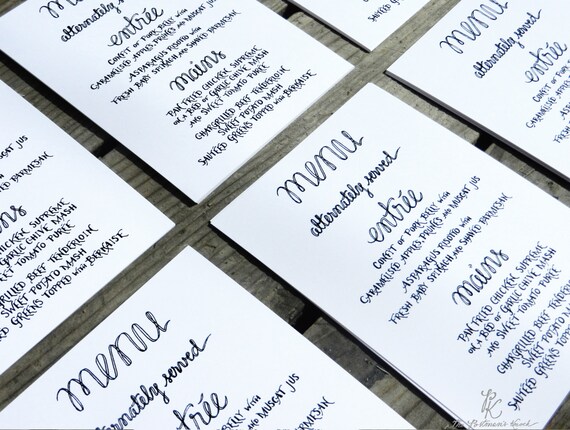 menu
alternately served
entrée
CONFIT OF PORK BELLY WITH
CARAMELISED APPLES, PRUNES AND MUSCAT JUS
ASPARAGUS RISOTTO WITH
FRESH BABY SPINACH AND SHAVED PARMESAN
mains
PAN FRIED CHICKEN SUPREME
ON A BED OF GARLIC CHIVE MASH
AND SWEET TOMATO PUREE
CHARGRILLED BEEF TENDERLOIN
SWEET POTATO MASH
SAUTEED GREENS TOPPED WITH BEARNAISE
menu
alternately served
entrée
CONFIT OF PORK BELLY WITH
CARAMELISED APPLES, PRUNES AND MUSCAT JUS
ASPARAGUS RISOTTO WITH
FRESH BABY SPINACH AND SHAVED PARMESAN
mains
PAN FRIED CHICKEN SUPREME
ON A BED OF GARLIC CHIVE MASH
AND SWEET TOMATO PUREE
CHARGRILLED BEEF TENDERLOIN
SWEET POTATO MASH
SAUTEED GREENS
menu
alternately served
entrée
CONFIT OF PORK
CARAMELISED APPLES,
ASPARAGUS
FRESH BABY
MUSCAT JUS
PARMESAN
CHICKEN SUPREME
GARLIC CHIVE MASH
SWEET TOMATO PUREE
CHARGRILLED BEEF TENDERLOIN
SWEET POTATO MASH
GREENS TOPPED WITH BEARNAISE
menu
alternately served
entrée
BELLY WITH
AND MUSCAT JUS
WITH
PARMESAN
SWEET POTATO MASH
SAUTEED GREENS TOPPED WITH BEARNAISE
PK